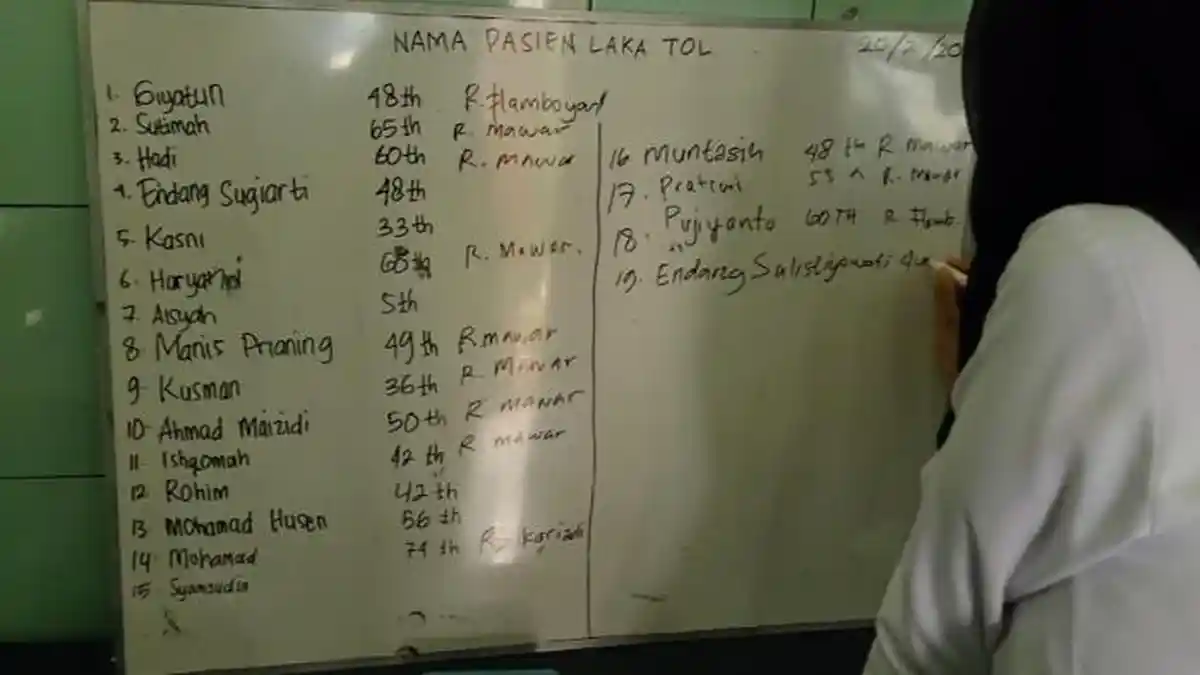 NAMA PASIEN LAKA TOL
1. Giyatun 48th R. Flamboyan
2. Sutimah 65th R. Mawar
3. Hadi 60th R. Mawar
4. Endang Sugiarti 48th
5. Kasni 33th
6. R. Mawar.
7. Aisyah 5th
8. Manis Prianing 49th R. Mawar
9. Kusman 36th R. Mawar
10. Ahmad Maizidi 50th R Mawar
11. Ishqomah 42th R Mawar
12. Rohim 42th
13. Mohamad Husen 56th
14. Mohamad 74th
15 Syamsudin
16 Muntasih 48th R Mawar
17. R. Mawar
18. Pujiyanto 60TH R Flamb.
19. Endang